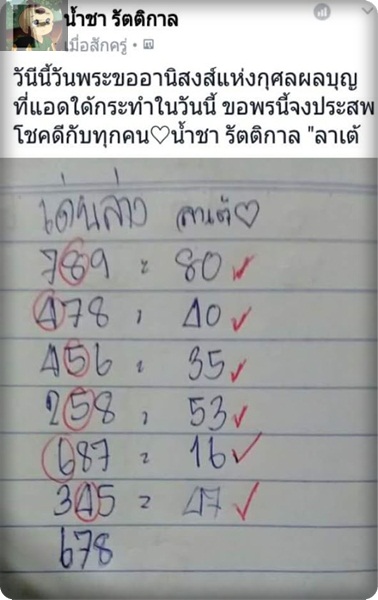 น้ำชา รัตติกาล
เมื่อสักครู่ ·
วันีนี้วันพระขออานิสงส์แห่งกุศลผลบุญ
ที่แอดใด้กระทำในวันนี้ ขอพรนี้จงประสพ
โชคดีกับทุกคน♡น้ำชา รัตติกาล "ลาเต้
เด่นล่าง ลาเต้♡
789 = 80 ✓
478 = 40 ✓
456 = 35 ✓
258 = 53 ✓
687 = 16 ✓
345 = 47 ✓
678